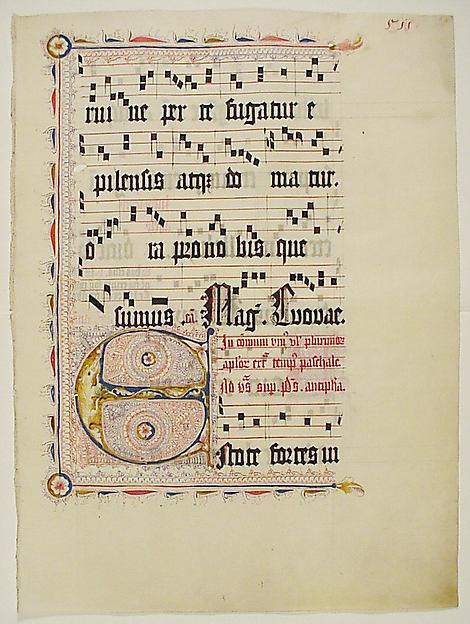 rui ne per te fugatur e
pilensis atqꝫ do matur.
o ra pro no bis. que
sumus .cã. Mag̃. Evovae.
In cõmuni vniꝰ vl' plurimorꝫ
aplõr ext̃ temp' paschale.
Ad vs̃ sup. ps̃. antipha.
Estote fortes in